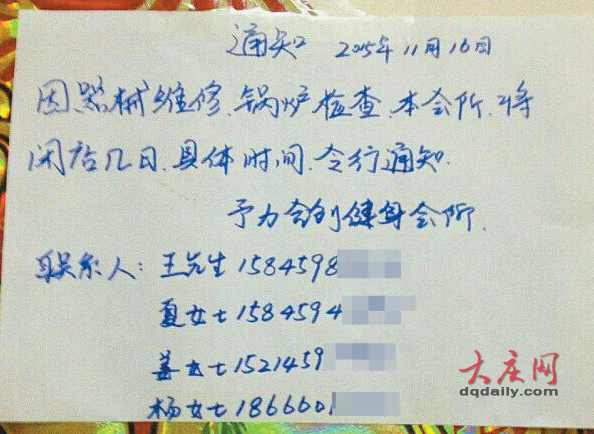 通知 2015年11月16日
因器械维修、锅炉检查、本会所、将
闭店几日、具体时间、令行通知.
予力会创健身会所.
联系人: 王先生 1584598
夏女士 1584594
姜女士 1521459
杨女士 1866601
大庆网
dqdaily.com